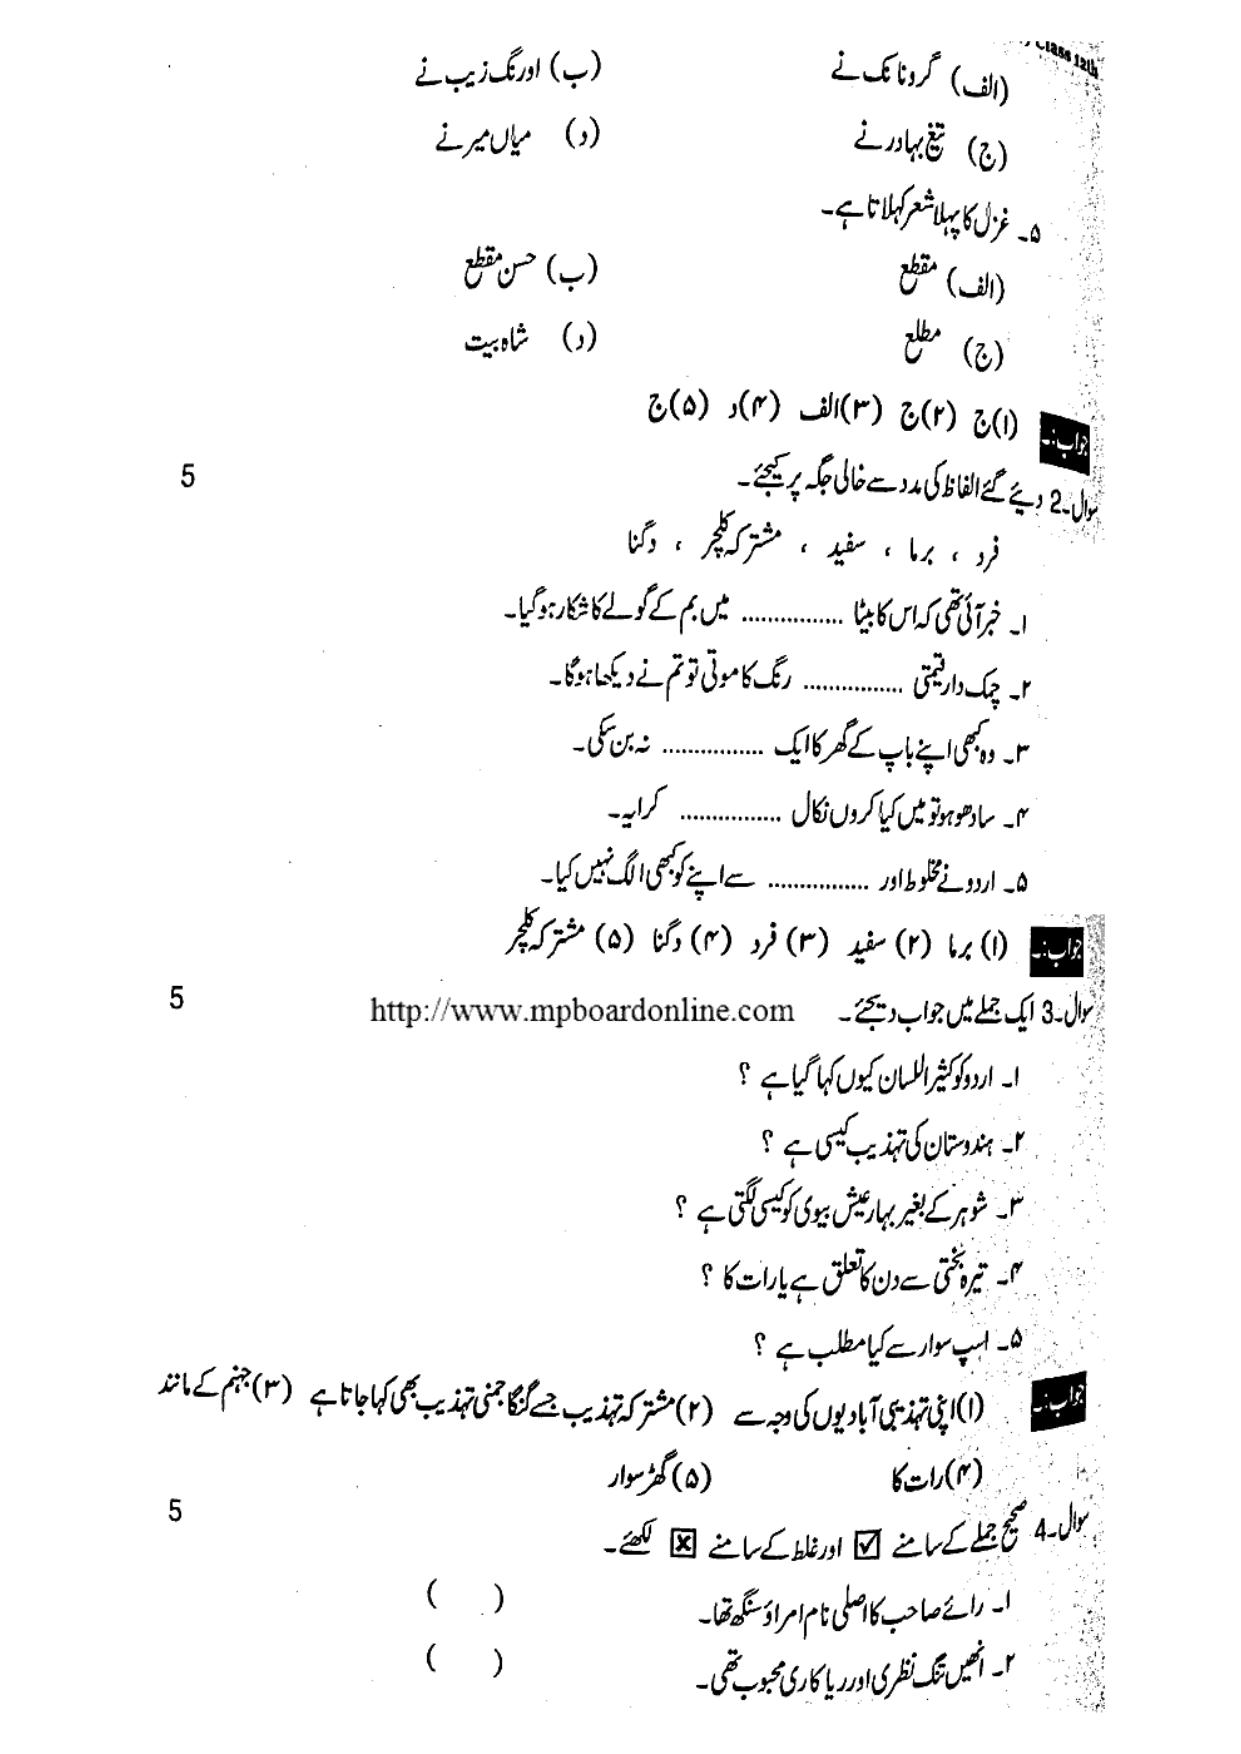 Class 12th
(الف) گرونانک نے (ب) اورنگ زیب نے
(ج) تیغ بہادر نے (د) میاں میر نے
۵۔ غزل کا پہلا شعر کہلاتا ہے۔
(الف) مقطع (ب) حسن مقطع
(ج) مطلع (د) شاہ بیت
جواب:۔ (۱) ج (۲) ج (۳) الف (۴) د (۵) ج
سوال۔2 دیئے گئے الفاظ کی مدد سے خالی جگہ پر کیجئے۔ 5
فرد ، برما ، سفید ، مشترکہ کلچر ، دگنا
۱۔ خبر آئی تھی کہ اس کا بیٹا ................ میں بم کے گولے کا شکار ہو گیا۔
۲۔ چمک دار قیمتی ................ رنگ کا موتی تو تم نے دیکھا ہوگا۔
۳۔ وہ کبھی اپنے باپ کے گھر کا ایک ................ نہ بن سکی۔
۴۔ سادھو ہو تو میں کیا کروں نکال ................ کرایہ۔
۵۔ اردو نے مخلوط اور ................ سے اپنے کو کبھی الگ نہیں کیا۔
جواب:۔ (۱) برما (۲) سفید (۳) فرد (۴) دگنا (۵) مشترکہ کلچر
سوال۔3 ایک جملے میں جواب دیجئے۔ http://www.mpboardonline.com 5
۱۔ اردو کو کثیر اللسان کیوں کہا گیا ہے ؟
۲۔ ہندوستان کی تہذیب کیسی ہے ؟
۳۔ شوہر کے بغیر بہار عیش بیوی کو کیسی لگتی ہے ؟
۴۔ تیرہ بختی سے دن کا تعلق ہے یا رات کا ؟
۵۔ اسپ سوار سے کیا مطلب ہے ؟
جواب:۔ (۱) اپنی تہذیبی آبادیوں کی وجہ سے (۲) مشترکہ تہذیب جسے گنگا جمنی تہذیب بھی کہا جاتا ہے (۳) جہنم کے مانند
(۴) رات کا (۵) گھڑ سوار
سوال۔4 صحیح جملے کے سامنے ☑ اور غلط کے سامنے ☒ لکھئے۔ 5
۱۔ رائے صاحب کا اصلی نام امراؤ سنگھ تھا۔ ( )
۲۔ انھیں تنگ نظری اور ریا کاری محبوب تھی۔ ( )